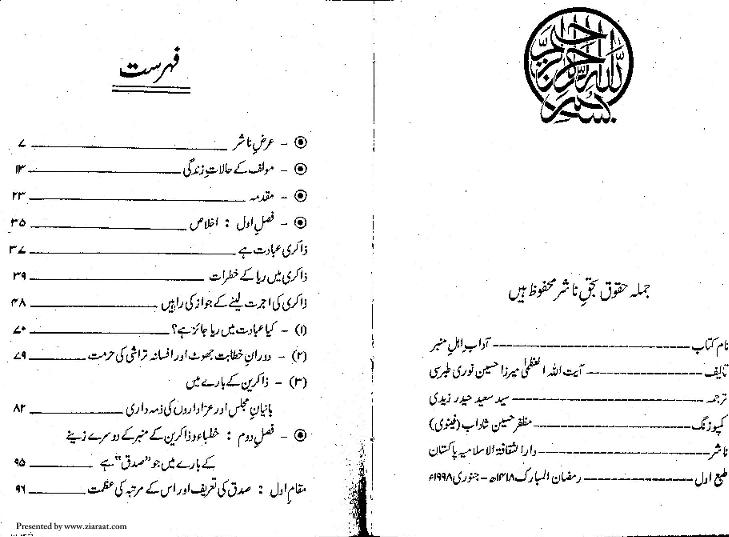 بسم اللہ الرحمن الرحیم
جملہ حقوق بحق ناشر محفوظ ہیں
نام کتاب ---------- آداب اہل منبر
تالیف ---------- آیت اللہ العظمیٰ میرزا حسین نوری طبرسی
ترجمہ ---------- سید سعید حیدر زیدی
کمپوزنگ ---------- مظفر حسین شاداب (فینڈی)
ناشر ---------- دار الثقافۃ الاسلامیہ پاکستان
طبع اول ---------- رمضان المبارک ۱۴۱۸ھ - جنوری ۱۹۹۸ء
فہرست
- عرض ناشر ________ ۷
- مولف کے حالات زندگی ________ ۱۳
- مقدمہ ________ ۲۳
- فصل اول : اخلاص ________ ۳۵
ذاکری عبادت ہے ________ ۳۷
ذاکری میں ریا کے خطرات ________ ۳۹
ذاکری کی اجرت لینے کے جواز کی راہیں ________ ۴۸
(۱) - کیا عبادت میں ریا جائز ہے؟ ________ ۷۰
(۲) - دوران خطابت جھوٹ اور افسانہ تراشی کی حرمت ________ ۷۹
(۳) - ذاکرین کے بارے میں
بانیان مجلس اور عزاداروں کی ذمہ داری ________ ۸۲
- فصل دوم : خطباء و ذاکرین کے منبر کے دوسرے زینے
کے بارے میں جو "صدق" ہے ________ ۹۵
مقام اول : صدق کی تعریف اور اس کے مرتبہ کی عظمت ________ ۹۶
Presented by www.ziaraat.com